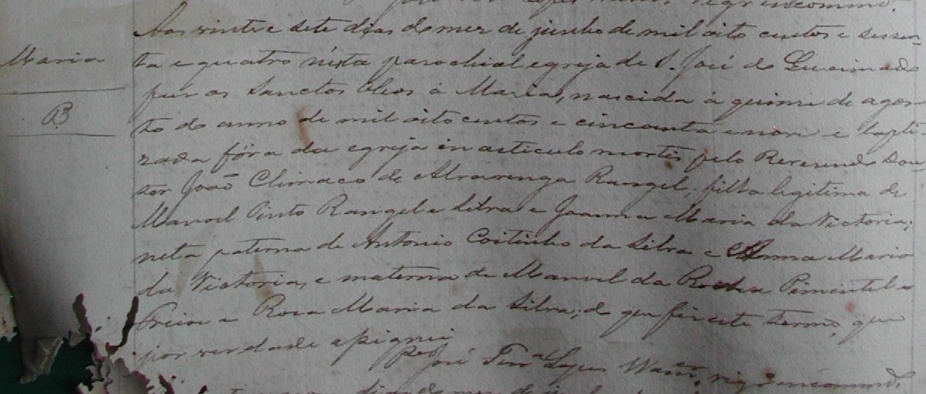 Maria
B.
Aos vinte e sete dias do mez de junho de mil oito centos e sessen-
ta e quatro nésta parochial egreja de S. José do Queimado
puz os Sanctos Oleos à Maria, nascida à quinze de agos-
to do anno de mil oito centos e cincoenta e nove e bapti-
zada fóra da egreja in articulo mortis pelo Reverendo Dou-
tor João Climaco de Alvarenga Rangel, filha legitima de
Manoel Pinto Rangel e Silva e Joanna Maria da Victoria;
neta paterna de Antonio Coitinho da Silva e Anna Maria
da Victoria, e materna de Manoel da Rocha Pimentel e
e Rosa Maria da Silva; do que fiz este termo, que
por verdade
José Lopes
dias do mez de